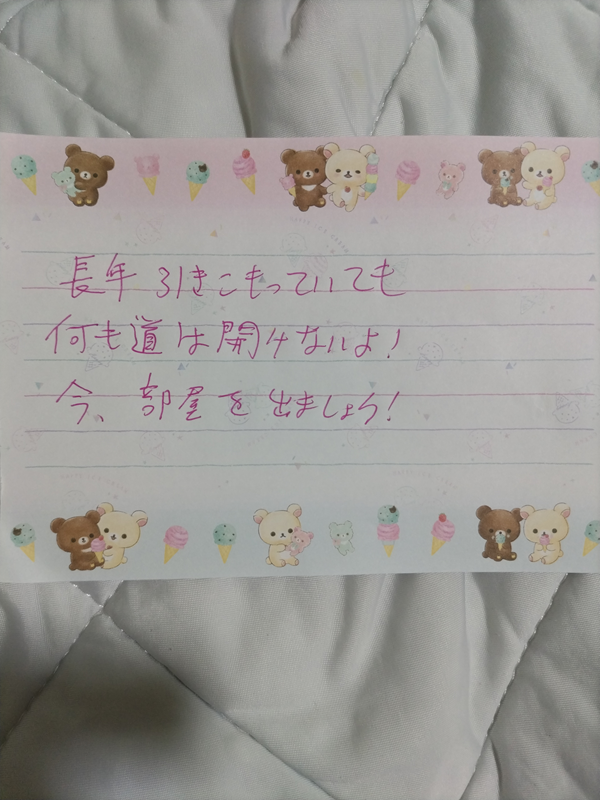 長年引きこもっていても
何も道は開けないよ!
今、部屋を出ましょう!